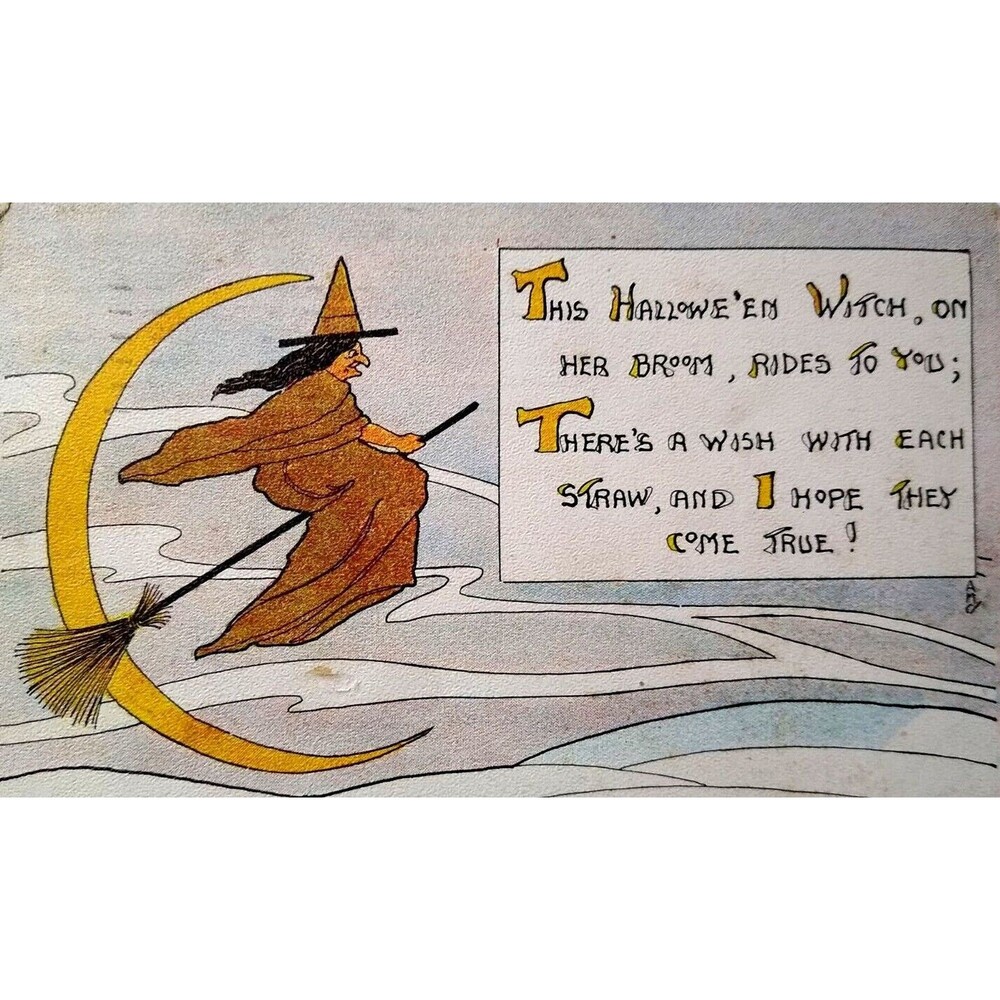 This Hallowe'en Witch, on
her broom, rides to you;
There's a wish with each
straw, and I hope they
come true!